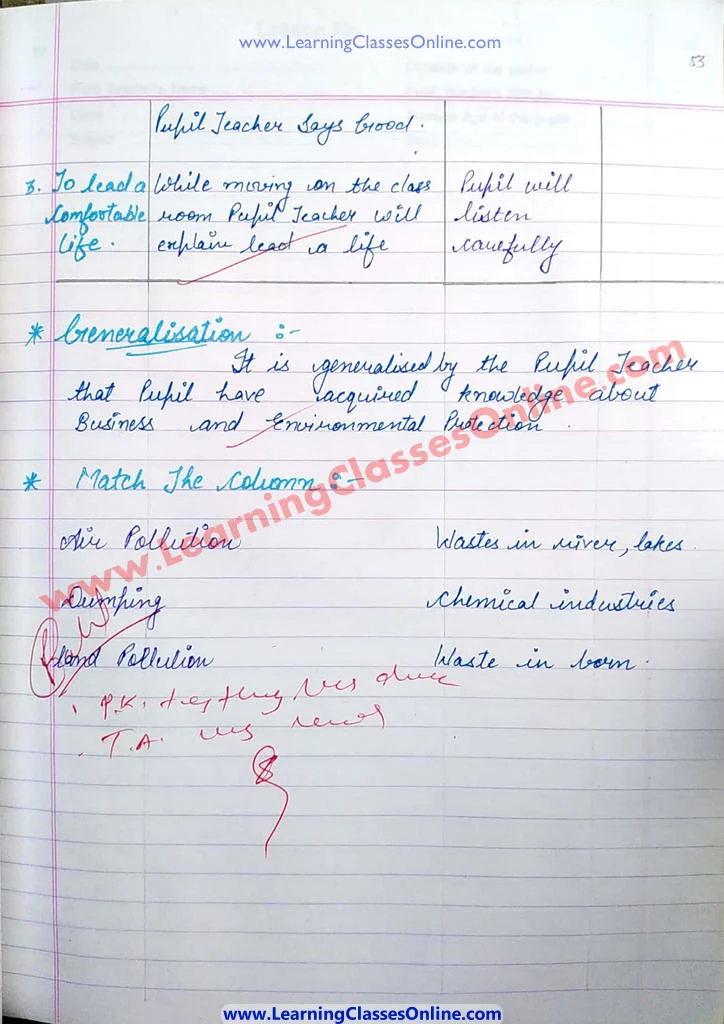 www.LearningClassesOnline.com
53
Pupil Teacher says Good.
3. To lead a While moving on the class Pupil will
comfortable room Pupil Teacher will listen
life. explain lead a life carefully
* Generalisation :-
It is generalised by the Pupil Teacher
that Pupil have acquired knowledge about
Business and Environmental Protection.
* Match The Column :-
Air Pollution Wastes in river, lakes.
Dumping Chemical industries
Land Pollution Waste in born.
P.K. testing was done
T.A. was
www.LearningClassesOnline.com
www.LearningClassesOnline.com